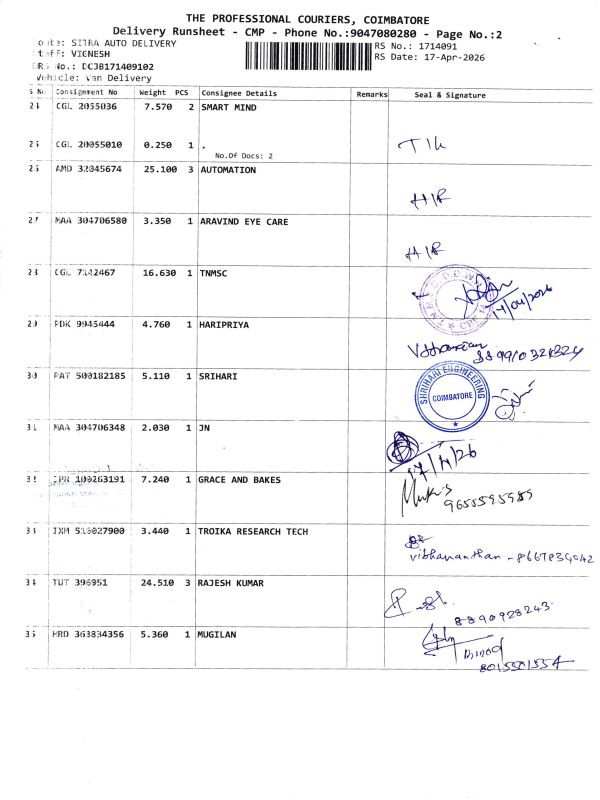 THE PROFESSIONAL COURIERS, COIMBATORE
Delivery Runsheet - CMP - Phone No.:9047080280 - Page No.:2
: SITRA AUTO DELIVERY
: VIGNESH
No.: DCJB171409102
Vehicle: Van Delivery
RS No.: 1714091
RS Date: 17-Apr-2026
S No Consignment No Weight PCS Consignee Details Remarks Seal & Signature
24 CGL 2055036 7.570 2 SMART MIND
25 CGL 20055010 0.250 1 .
No.Of Docs: 2
26 AMD 32045674 25.100 3 AUTOMATION
H/R
27 MAA 304706580 3.350 1 ARAVIND EYE CARE
H/R
28 CGL 7142467 16.630 1 TNMSC
17/04/2026
29 PDK 9945444 4.760 1 HARIPRIYA
30 PAT 500182185 5.110 1 SRIHARI
SHRIHARI ENGINEERING
COIMBATORE
31 MAA 304706348 2.030 1 JN
17/4/26
32 100263191 7.240 1 GRACE AND BAKES
9655595989
33 IXM 513027900 3.440 1 TROIKA RESEARCH TECH
vibhavanthan - 8667834042
34 TUT 396951 24.510 3 RAJESH KUMAR
8890928243
35 HRD 363834356 5.360 1 MUGILAN
Binod
8015501554